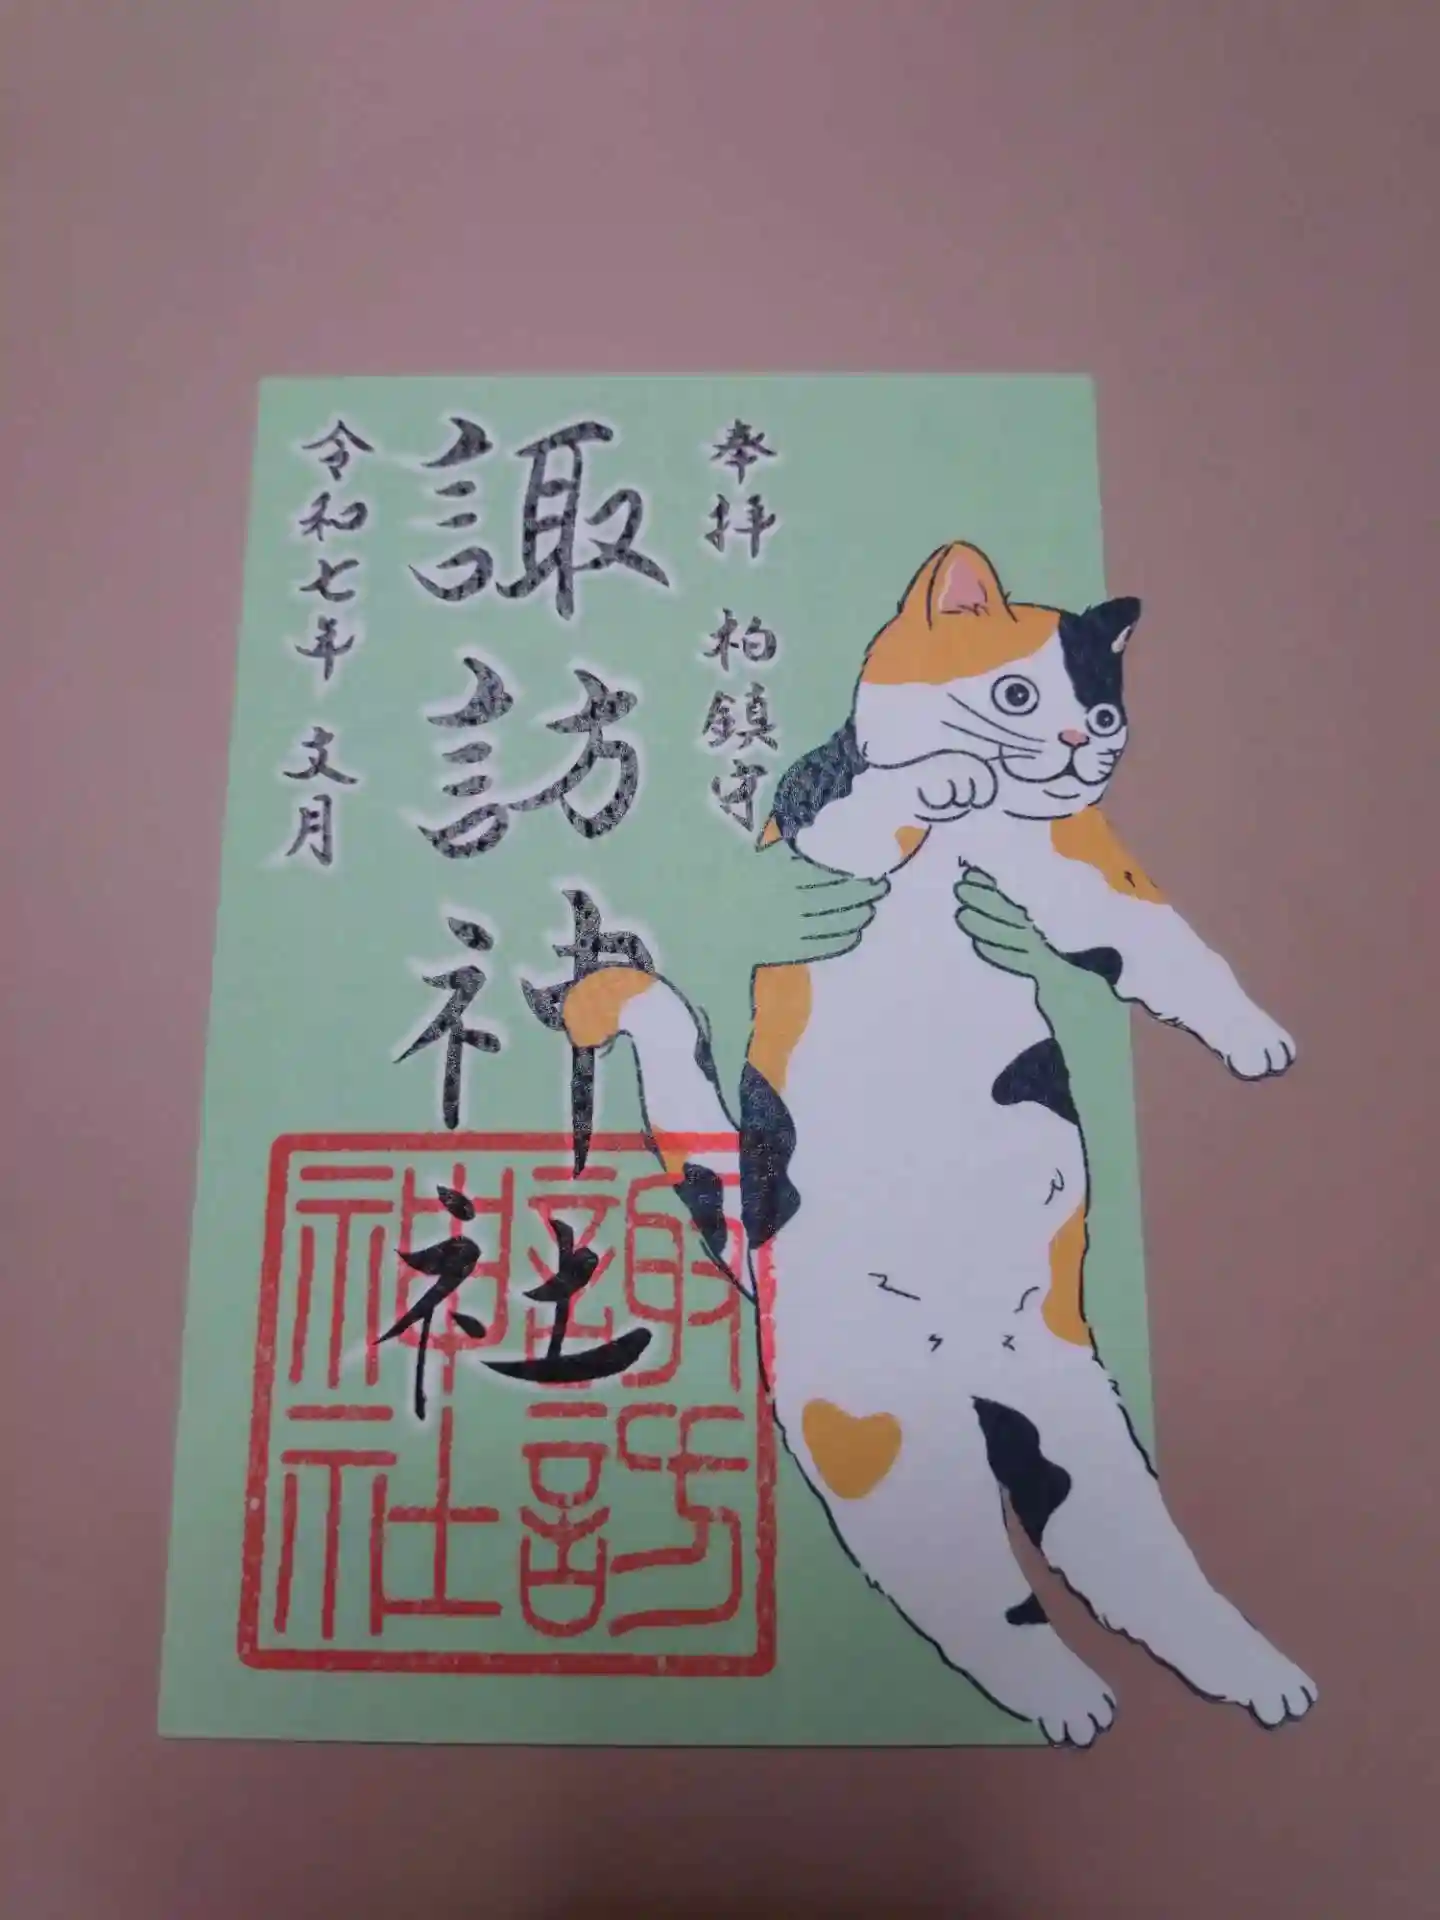 奉拝 柏鎮守
諏訪神社
令和七年 文月
諏訪
神社